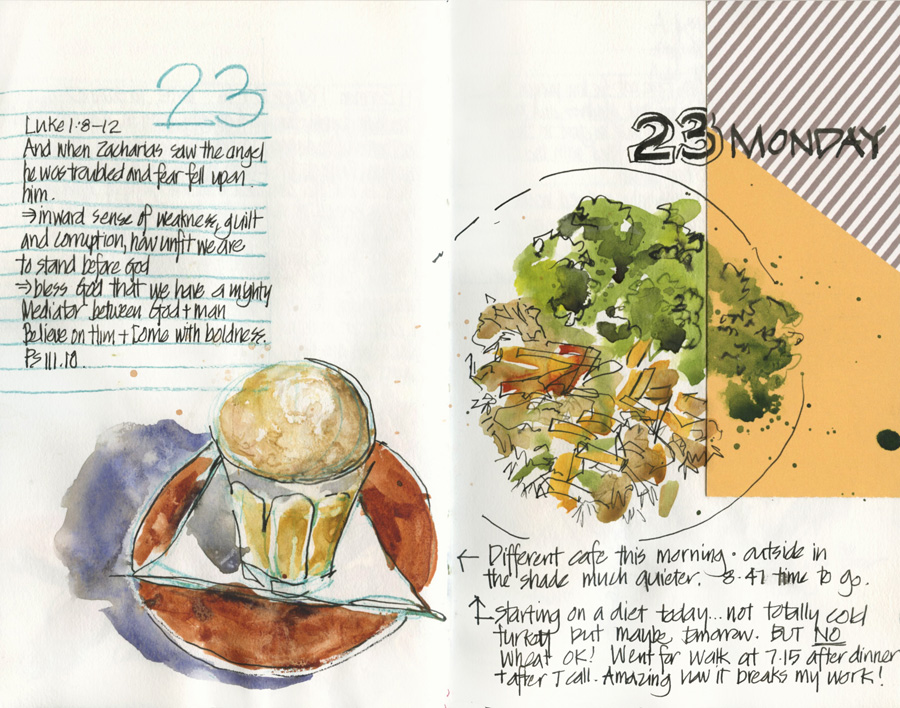 23
Luke 1.8-12
And when Zacharias saw the angel
he was troubled and fear fell upon
him.
⇒ inward sense of weakness, guilt
and corruption, how unfit we are
to stand before God
⇒ bless God that we have a mighty
Mediator between God + man
Believe on Him + Come with boldness.
Ps 111.10
23 MONDAY
← Different cafe this morning · outside in
the shade much quieter. 8.47 time to go.
↑ starting on a diet today... not totally cold
turkey but maybe tomorrow. BUT NO
wheat OK! Went for walk at 7.15 after dinner
+ after T call. Amazing how it breaks my work!